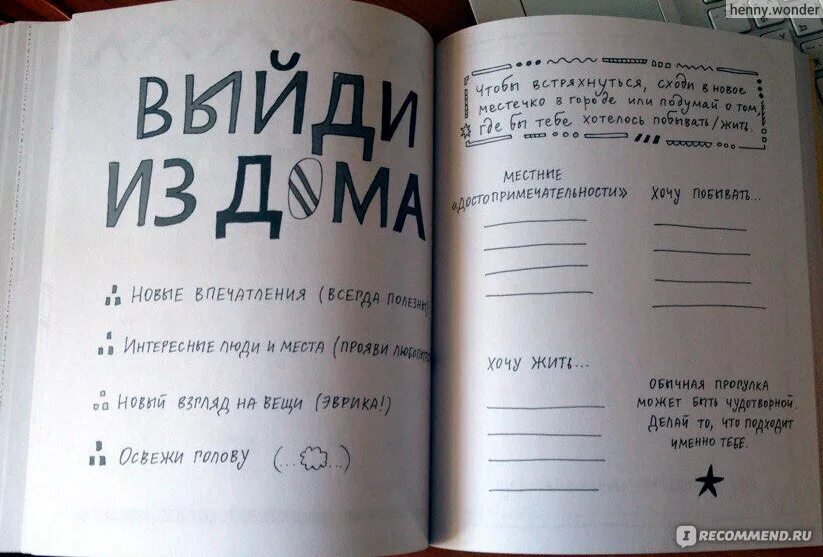 henny.wonder
ВЫЙДИ
ИЗ ДОМА
Новые впечатления (всегда полезны)
Интересные люди и места (прояви
Новый взгляд на вещи (эврика!)
Освежи голову (... ...)
Чтобы встряхнуться, сходи в новое
местечко в городе или подумай о том,
где бы тебе хотелось побывать/жить.
МЕСТНЫЕ
«ДОСТОПРИМЕЧАТЕЛЬНОСТИ»
ХОЧУ ПОБЫВАТЬ...
ХОЧУ ЖИТЬ...
Обычная прогулка
может быть чудотворной.
Делай то, что подходит
именно тебе.
IRECOMMEND.RU